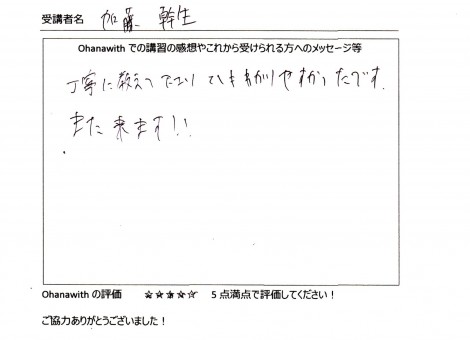 受講者名 加藤 幹生
Ohanawith での講習の感想やこれから受けられる方へのメッセージ等
丁寧に教えて下さり とてもわかりやすかったです.
また来ます!!
Ohanawith の評価 ☆☆☆☆☆ 5 点満点で評価してください!
ご協力ありがとうございました!